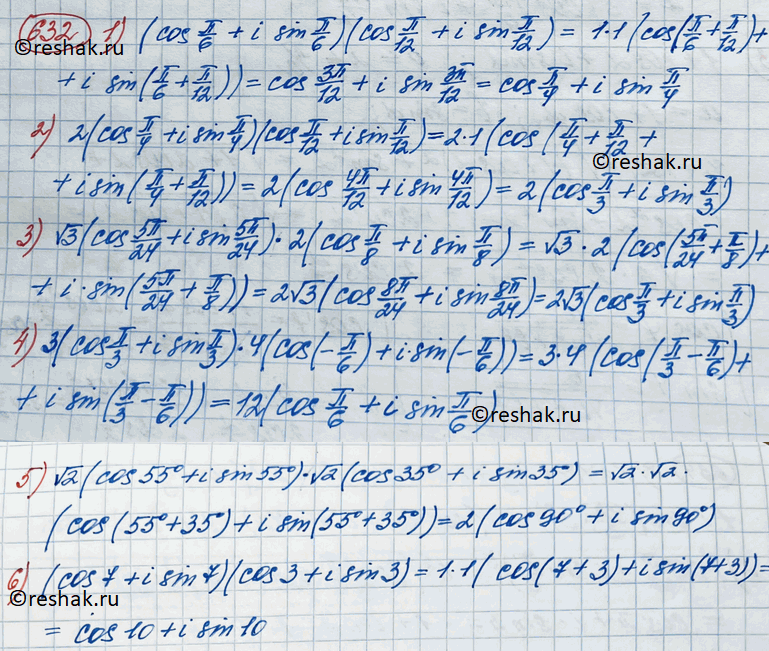 632 1) (cos π/6 + i sin π/6)(cos π/12 + i sin π/12) = 1·1 (cos(π/6 + π/12) +
+ i sin(π/6 + π/12)) = cos 3π/12 + i sin 3π/12 = cos π/4 + i sin π/4
2) 2(cos π/4 + i sin π/4)(cos π/12 + i sin π/12) = 2·1 (cos (π/4 + π/12 +
©reshak.ru
+ i sin (π/4 + π/12)) = 2(cos 4π/12 + i sin 4π/12) = 2(cos π/3 + i sin π/3)
3) √3(cos 5π/24 + i sin 5π/24)·2(cos π/8 + i sin π/8) = √3·2 (cos(5π/24 + π/8) +
+ i·sin(5π/24 + π/8)) = 2√3(cos 8π/24 + i sin 8π/24) = 2√3(cos π/3 + i sin π/3)
4) 3(cos π/3 + i sin π/3)·4(cos(-π/6) + i sin(-π/6)) = 3·4 (cos(π/3 - π/6) +
+ i sin(π/3 - π/6)) = 12(cos π/6 + i sin π/6)
©reshak.ru
5) √2(cos 55° + i sin 55°)·√2(cos 35° + i sin 35°) = √2·√2·
(cos(55° + 35°) + i sin(55° + 35°)) = 2(cos 90° + i sin 90°)
6) (cos 7 + i sin 7)(cos 3 + i sin 3) = 1·1( cos(7+3) + i sin(7+3)) =
©reshak.ru
= cos 10 + i sin 10